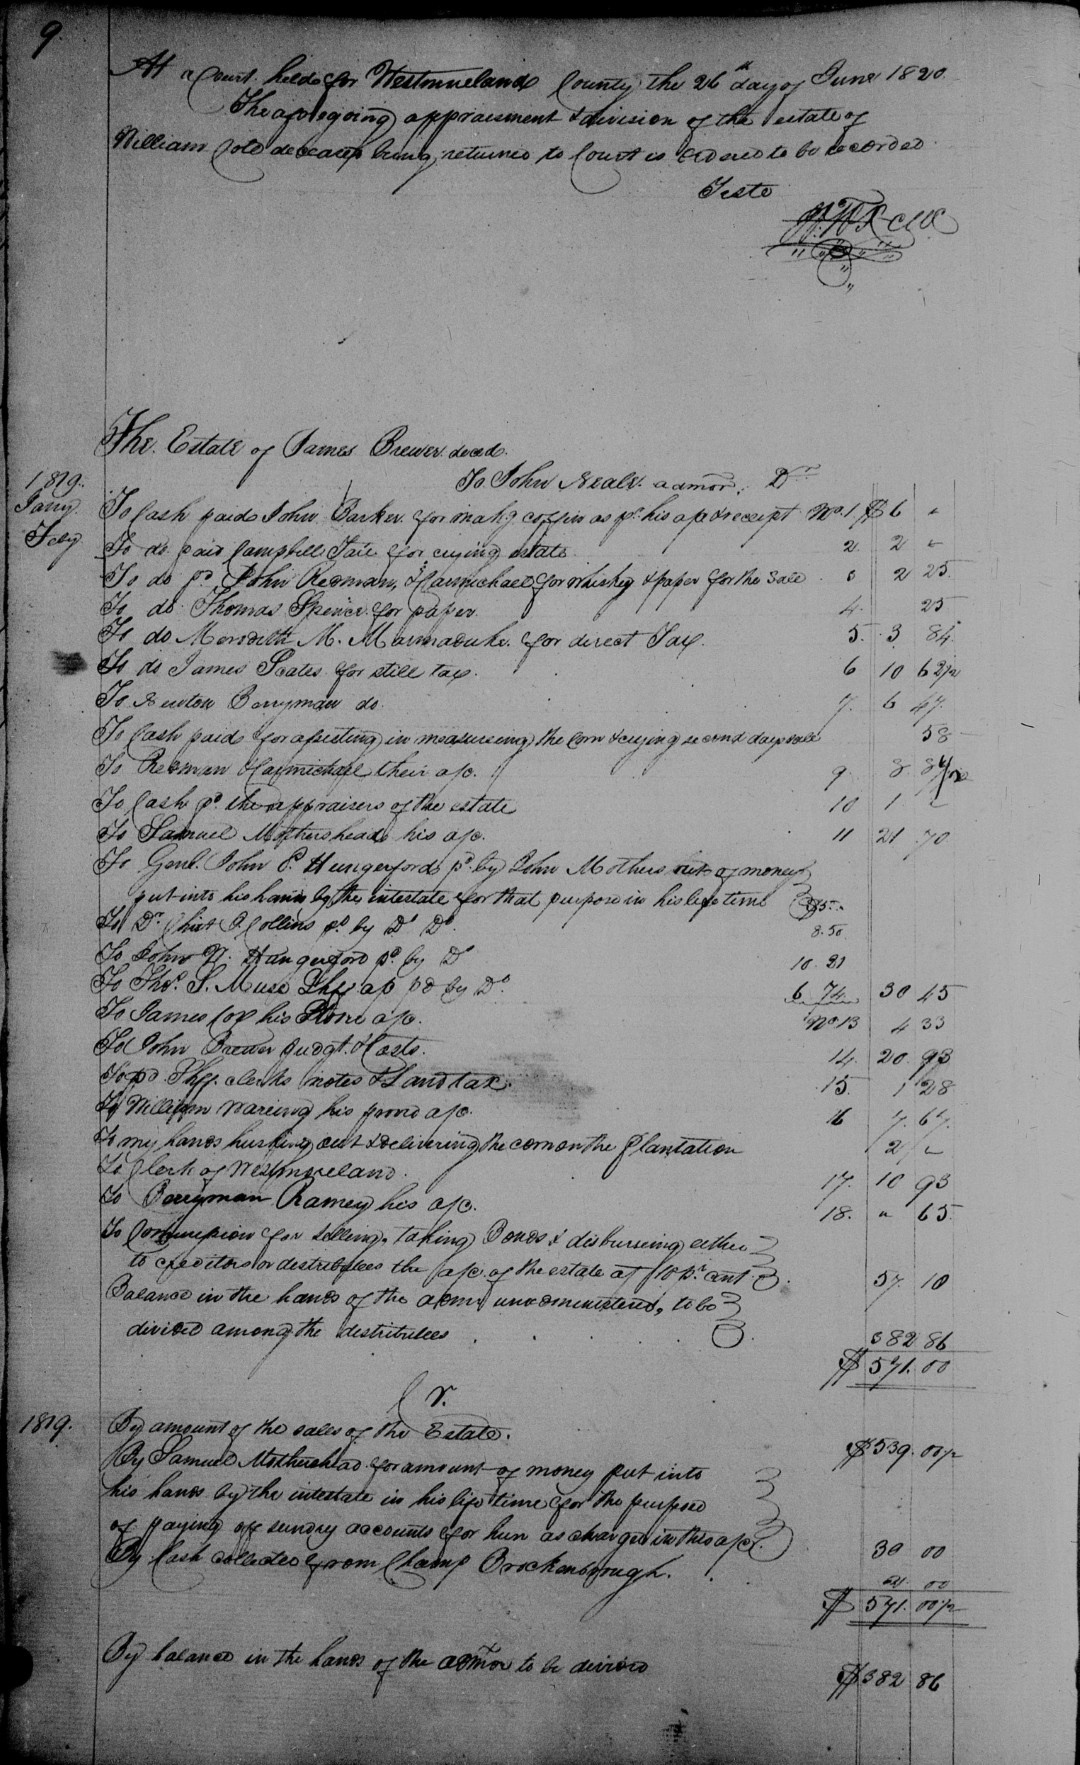 9.
At a Court held for Westmoreland County the 26th day of June 1820
The aforegoing appraisment & division of the estate of
William Cole deceased being returned to Court is ordered to be recorded
Teste
The Estate of James Brewer decd.
To John Neale admor. Dr
1819.
Jany To Cash paid John Barker for makg coffin as pr his a/c & receipt No. 1 $ 6 "
Feby To do paid Campbell Tait for crying estate 2 2 "
To do pd John Redman, & Carmichael for whiskey & paper for the sale 3 2 25
To do Thomas Spence for paper 4. 25
To do Meredith M. Marmaduke for direct Tax. 5. 3 84
To do James Scates for still tax. 6 10 62 1/2
To Newton Berryman do 7. 6 47
To Cash paid for assisting in measureing the Corn & crying second days sale 58
To Redman & Carmichael their a/c. 9 8 84
To Cash pd the appraisers of the estate 10 1 "
To Samuel Mothershead his a/c. 11 21 70
To Genl. John P. Hungerford pd by John Mothers out of money
put into his hands by the intestate for that purpose in his life time
To Dr. Christ Collins pd by Do Do. 8.50
To John W. Hungerford pd by Do 10.21
To Thos. S. Muse Shff a/c pd by Do. 6 74 30 45
To James Cox his Store a/c. No 13 4 33
To John Brewer Judgt. & Costs. 14. 20. 93
To pd Shff. clerks notes & Land tax. 15. 1 28
To William Wareing his proved a/c. 16 7. 67.
To my hands husking out & delivering the corn on the Plantation 2 "
To Clerk of Westmoreland. 17. 10 93
To Berryman Ramey his a/c. 18. " 65
To Commission for selling, taking Bonds & disbursing either
to creditors or distributees the a/c of the estate at 10 Pr. cent 57 10
Balance in the hands of the admr unadministered, to be
divided among the distributees 382 86
$ 571.00
Cr.
1819. By amount of the sales of the Estate. $539.00 1/2
By Samuel Mothershead for amount of money put into
his hands by the intestate in his life time for the purpose
of paying off sundry accounts for him as charged in this a/c. 30 00
By Cash collected from Champ Brockenbrough. 2. 00
$ 571.00 1/2
By balance in the hands of the admor to be divided $382 86